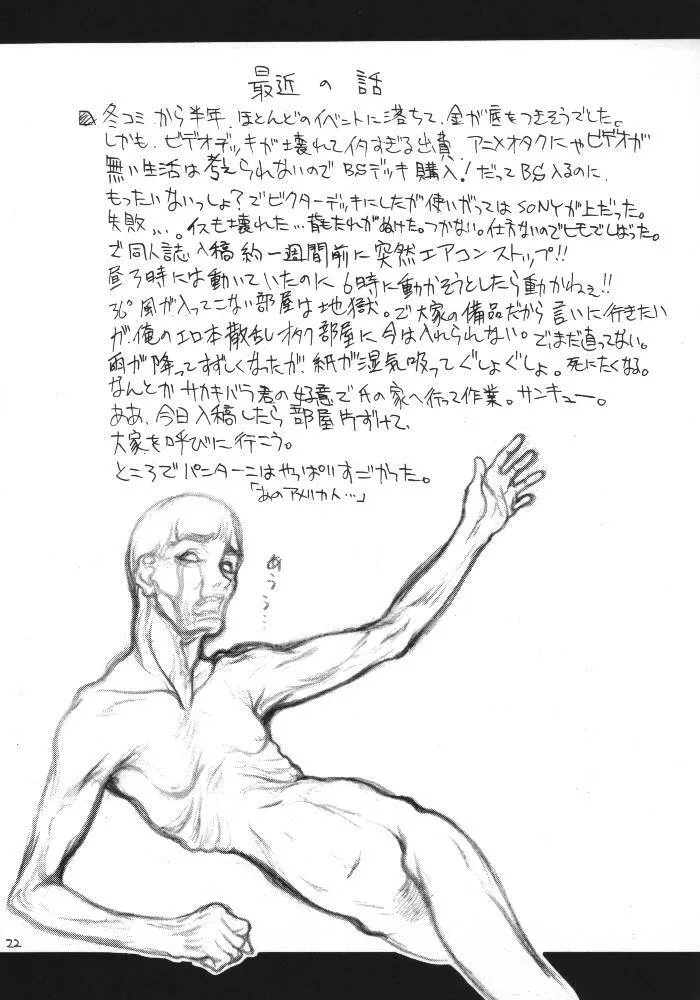 最近の話
冬コミから半年、ほとんどのイベントに落ちて、金が底もつきそうでした。
しかも、ビデオデッキが壊れてイタすぎる出費、アニメオタクにゃビデオが
無い生活は考えられないのでBSデッキ購入!だってBS入るのに、
もったいないっしょ?でビクターデッキにしたが使いがってはSONYが上だった。
失敗、、、。イスも壊れた…背もたれがぬけた。つかない。仕方ないのでヒモでしばった。
で同人誌入稿約一週間前に突然エアコンストップ!!
昼3時には動いていたのに6時に動かそうとしたら動かねぇ!!
36°風が入ってこない部屋は地獄。で大家の備品だから言いに行きたい
が、俺のエロ本散乱オタク部屋に今は入れられない。でまだ直ってない。
雨が降ってすずしくなったが、紙が湿気吸ってぐしょぐしょ。死にたくなる。
なんとかサカキバラ君の好意で氏の家へ行って作業。サンキュー。
ああ、今日入稿したら部屋片ずけて、
大家を呼びに行こう。
ところでパンターニはやっぱりすごかった。
「あのアメリカん…」
あうう…
22